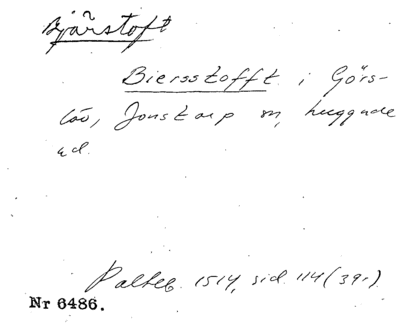 Bjärstoft
Biersstofft i Görs-
löv, Jonstorp sn, huggude
ad.
Palteb. 1514, sid. 114 (39r)
Nr 6486.